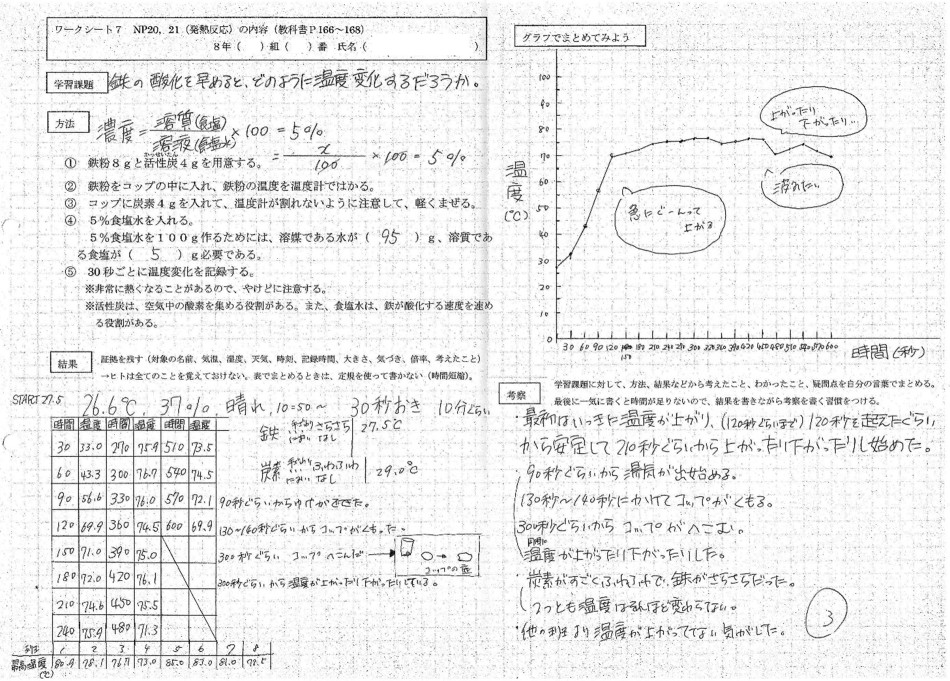 ワークシート7 NP20,21(発熱反応)の内容(教科書P166~168)
8年( )組( )番 氏名( )
学習課題 鉄の酸化を早めると、どのように温度変化するだろうか。
方法
濃度=溶質(食塩)/溶液(食塩水)×100=5%
=x/100×100=5%
① 鉄粉8gと活性炭4gを用意する。
② 鉄粉をコップの中に入れ、鉄粉の温度を温度計ではかる。
③ コップに炭素4gを入れて、温度計が割れないように注意して、軽くまぜる。
④ 5%食塩水を入れる。
5%食塩水を100g作るためには、溶媒である水が( 95 )g、溶質であ
る食塩が( 5 )g必要である。
⑤ 30秒ごとに温度変化を記録する。
※非常に熱くなることがあるので、やけどに注意する。
※活性炭は、空気中の酸素を集める役割がある。また、食塩水は、鉄が酸化する速度を速め
る役割がある。
結果
証拠を残す(対象の名前、気温、湿度、天気、時刻、記録時間、大きさ、気づき、倍率、考えたこと)
→ヒトは全てのことを覚えておけない。表でまとめるときは、定規を使って書かない(時間短縮)。
START 27.5
26.6℃, 37%, 晴れ, 10:50~ 30秒おき 10分ぐらい
時間 温度 時間 温度 時間 温度
30 33.0 270 75.9 510 73.5
60 43.3 300 76.7 540 74.5
90 56.6 330 76.0 570 72.1
120 69.9 360 74.5 600 69.9
150 71.0 390 75.0
180 72.0 420 76.1
210 74.6 450 75.5
240 75.9 480 71.3
鉄 さらさら なし 27.5℃
炭素 ふわふわ なし 29.0℃
90秒ぐらいからゆげがでてきた。
130~140秒ぐらいからコップがくもった。
300秒ぐらい コップへこんだ
コップの底
300秒ぐらいから温度が上がったり下がったりしている。
班 1 2 3 4 5 6 7 8
最高温度(℃) 80.9 78.1 76.7 73.0 85.0 83.0 81.0 78.5
グラフでまとめてみよう
100
90
80
70
60
50
40
30
20
10
0
温度(℃)
30 60 90 120 150 180 210 240 270 300 330 360 390 420 450 480 510 540 570 600
時間(秒)
上がったり
下がったり…
急にぐーんって
上がる
考察
学習課題に対して、方法、結果などから考えたこと、わかったこと、疑問点を自分の言葉でまとめる。
最後に一気に書くと時間が足りないので、結果を書きながら考察を書く習慣をつける。
・最初はいっきに温度が上がり、(120秒ぐらいまで)120秒を超えたぐらい
から安定して210秒ぐらいから上がったり下がったりし始めた。
90秒ぐらいから湯気が出始める。
130秒~140秒にかけてコップがくもる。
300秒ぐらいからコップがへこむ。
同時に
温度が上がったり下がったりした。
・炭素がすごくふわふわで、鉄がさらさらだった。
2つとも温度はそれほど変わらない。
・他の班より温度が上がってない気がした。
3